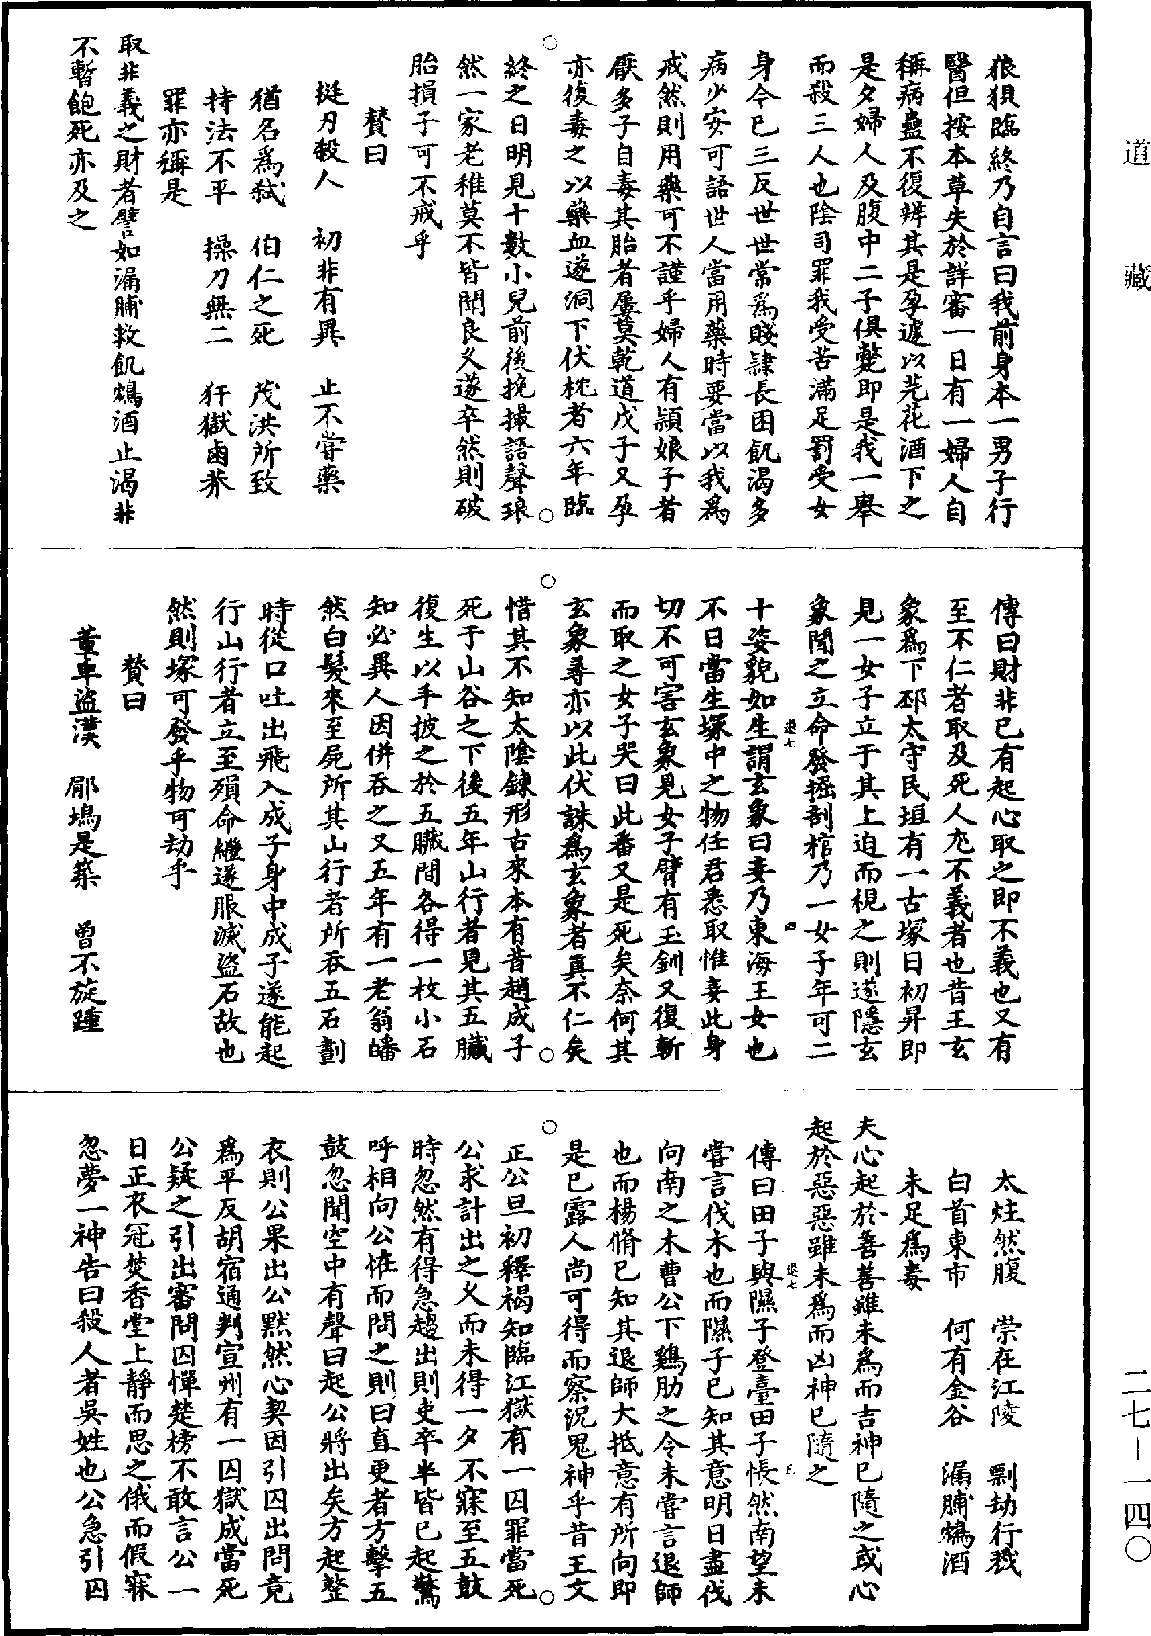 狼狽臨終乃自言曰我前身本一男子行
醫但按本草失於詳審一日有一婦人自
稱病蠱不復辨其是孕遽以芫花酒下之
是夕婦人及腹中二子俱斃即是我一舉
而殺三人也陰司罪我受苦滿足罰受女
身今已三反世世常為賤隸長困飢渴多
病少安可語世人當用藥時要當以我為
戒然則用藥可不謹乎婦人有頴娘子者
厭多子自毒其胎者屢莫乾道戊子又孕
亦復毒之以藥血遂洞下伏枕者六年臨
終之日明見十數小兒前後挽撮語聲琅
然一家老稚莫不皆聞良久遂卒然則破
胎損子可不戒乎
贊曰
挺刃殺人　初非有異　止不嘗藥
猶名為弒　伯仁之死　茂洪所致
持法不平　操刀無二　犴獄鹵莽
罪亦稱是
取非義之財者譬如漏脯救飢鴆酒止渴非
不暫飽死亦及之
傳曰財非已有起心取之即不義也又有
至不仁者取及死人尤不義者也昔王玄
象為下邳太守民垣有一古塚日初昇即
見一女子立于其上迫而視之則遂隱玄
象聞之立命發掘剖棺乃一女子年可二
十姿貌如生謂玄象曰妾乃東海王女也
不日當生塚中之物任君悉取惟妾此身
切不可害玄象見女子臂有玉釧又復斬
而取之女子哭曰此番又是死矣奈何其
玄象尋亦以此伏誅為玄象者真不仁矣
惜其不知太陰鍊形古來本有昔趙成子
死于山谷之下後五年山行者見其五臟
復生以手披之於五臟間各得一枚小石
知必異人因併吞之又五年有一老翁皤
然白髮來至屍所其山行者所吞五石劃
時從口吐出飛入成子身中成子遂能起
行山行者立至殞命繼遂服滅盜石故也
然則塚可發乎物可劫乎
贊曰
董卓盜漢　郿塢是築　曾不旋踵
太炷然腹　崇在江陵　剽劫行戮
白首東市　何有金谷　漏脯鴆酒
未足為毒
夫心起於善善雖未為而吉神已隨之或心
起於惡惡雖未為而凶神已隨之
傳曰田子與隰子登臺田子悵然南望未
嘗言伐木也而隰子已知其意明日盡伐
向南之木曹公下鷄肋之令未嘗言退師
也而楊脩已知其退師大抵意有所向即
是已露人尚可得而察況鬼神乎昔王文
正公旦初釋褐知臨江獄有一囚罪當死
公求計出之久而未得一夕不寐至五鼓
時忽然有得急趨出則吏卒半皆已起驚
呼相向公恠而問之則曰直更者方擊五
鼓忽聞空中有聲曰起公將出矣方起整
衣則公果出公默然心契因引囚出問竟
為平反胡宿通判宣州有一囚獄成當死
公疑之引出審問囚憚楚榜不敢言公一
日正衣冠焚香堂上靜而思之俄而假寐
忽夢一神告曰殺人者吳姓也公急引囚
道藏
二七－一四〇